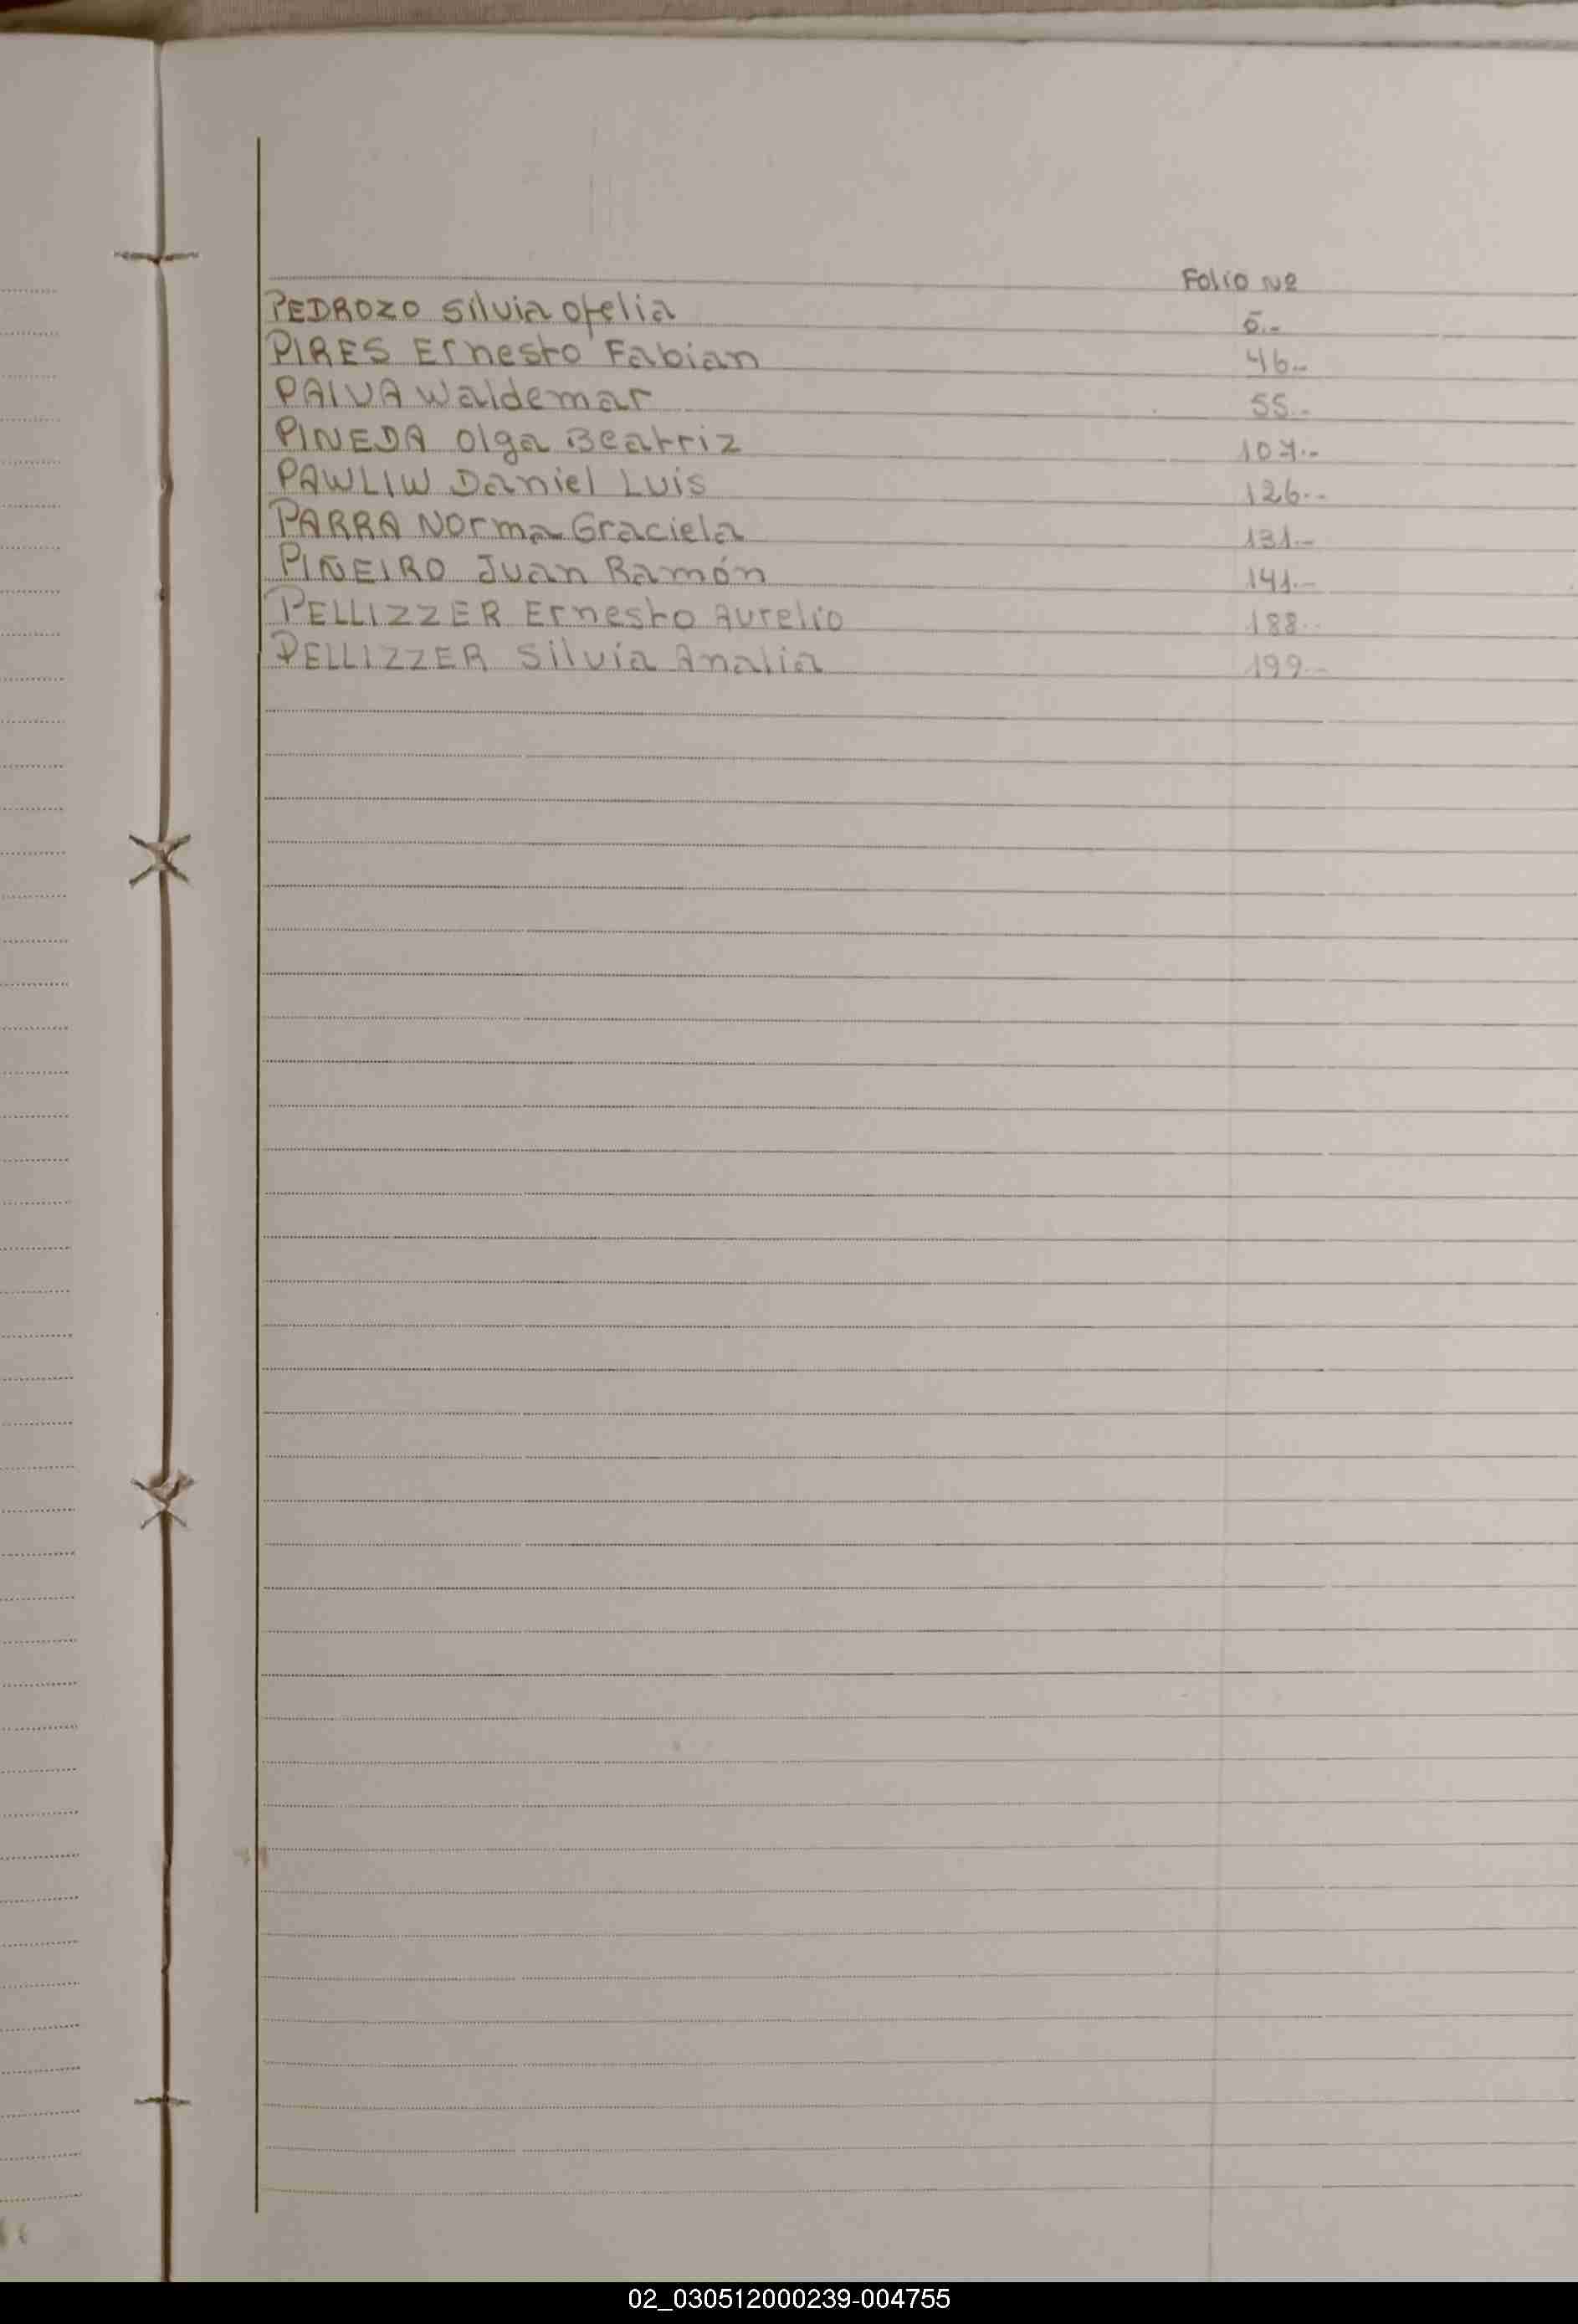 Folio Nº
PEDROZO Silvia Ofelia 5.-
PIRES Ernesto Fabian 46.-
PAIVA Waldemar 55.-
PINEDA Olga Beatriz 107.-
PAWLIW Daniel Luis 126.-
PARRA Norma Graciela 131.-
PIÑEIRO Juan Ramón 141.-
PELLIZZER Ernesto Aurelio 188.-
PELLIZZER Silvia Analia 199.-
02_030512000239-004755